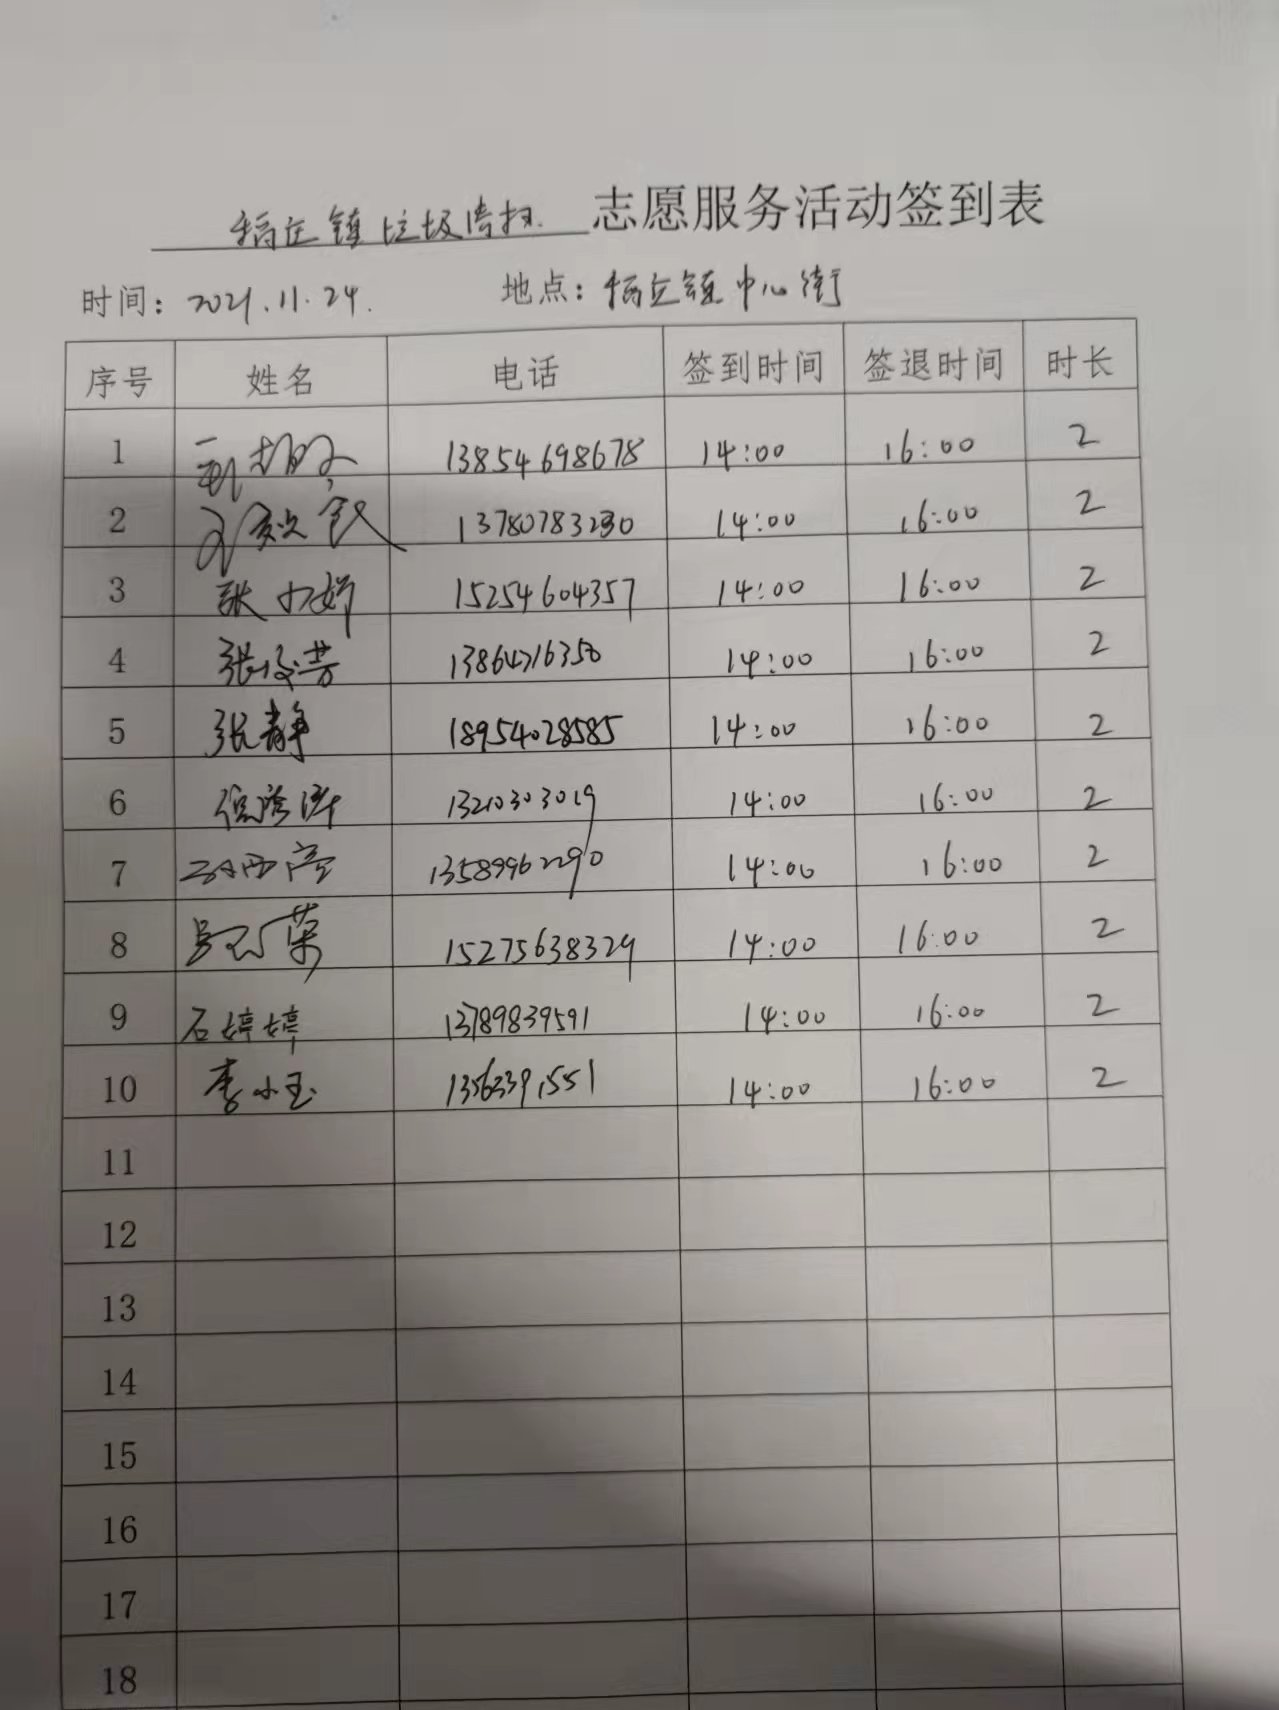 稻庄镇垃圾清扫 志愿服务活动签到表
时间：2021.11.24. 地点：稻庄镇中心街
序号 姓名 电话 签到时间 签退时间 时长
1 13854698678 14:00 16:00 2
2 13780783230 14:00 16:00 2
3 张 15254604357 14:00 16:00 2
4 张俊芳 13864716350 14:00 16:00 2
5 张静 18954028585 14:00 16:00 2
6 13210303019 14:00 16:00 2
7 13589962290 14:00 16:00 2
8 15275638329 14:00 16:00 2
9 石婷婷 13789839591 14:00 16:00 2
10 李小玉 13563391551 14:00 16:00 2
11
12
13
14
15
16
17
18